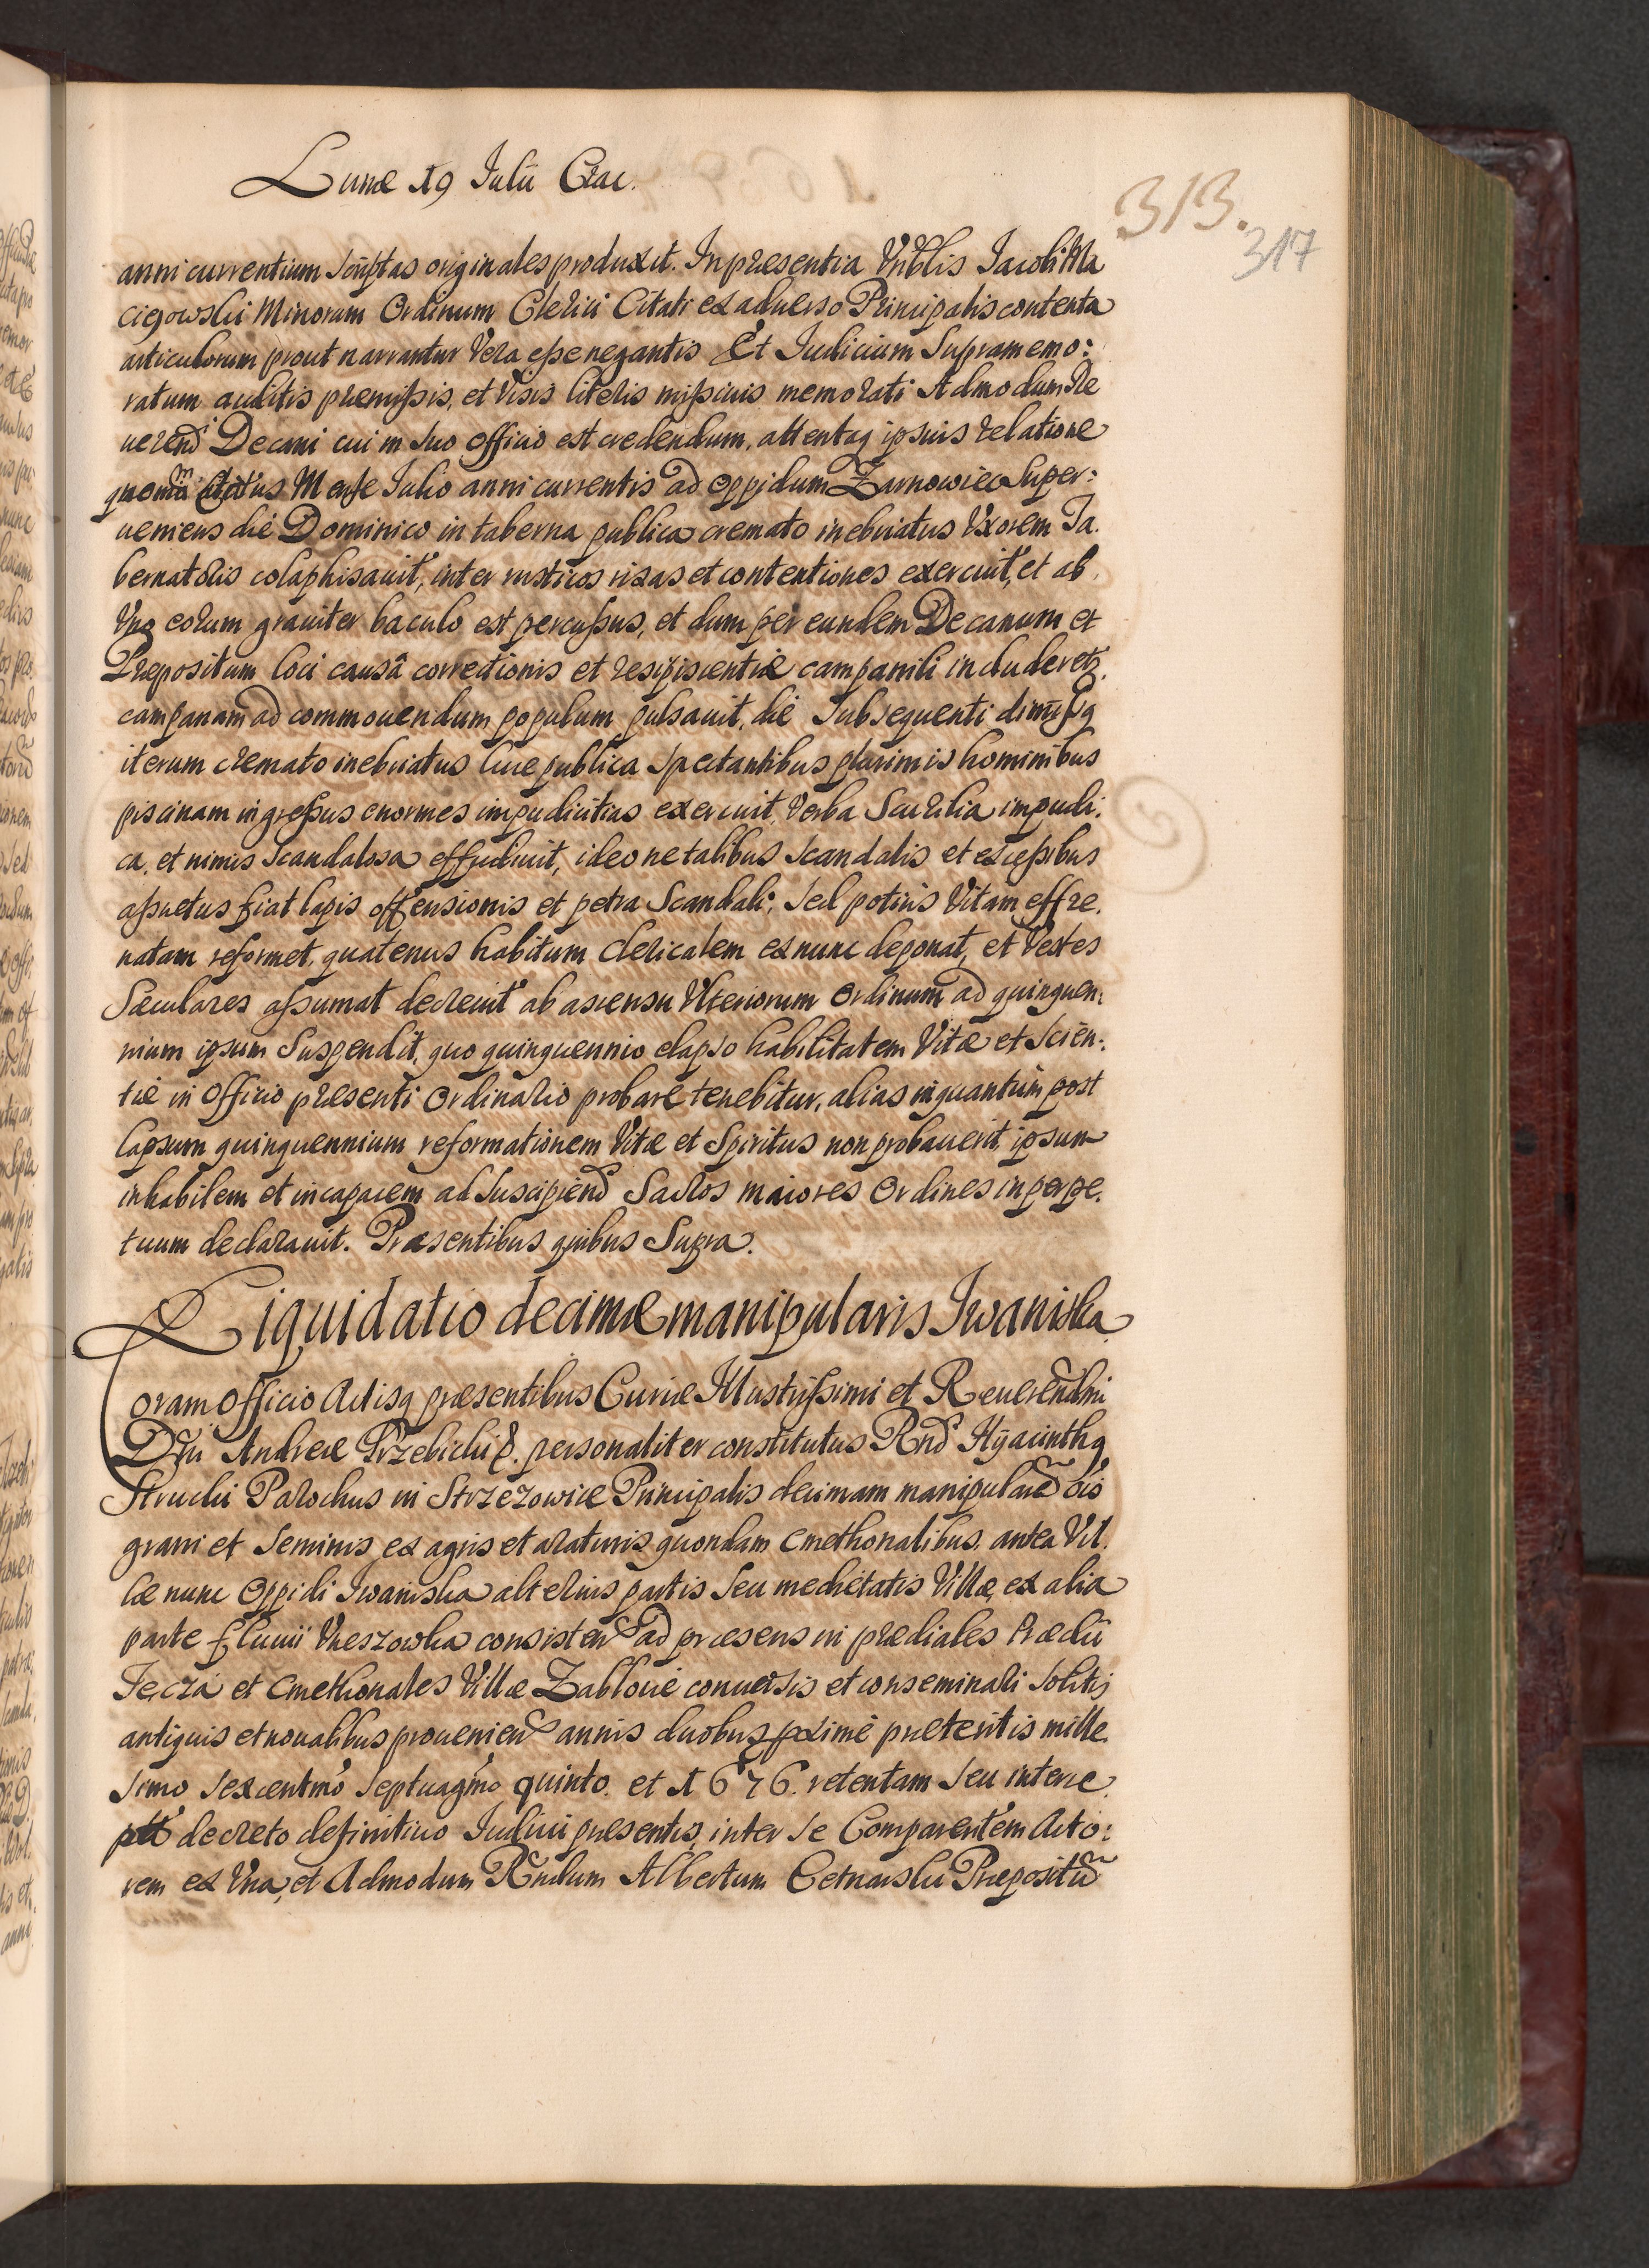 Lunæ 19 Iulii Crac.
313.
317
anni currentium scriptas originales produxit. In præsentia Vnblis Iacobi Ma
ciejowski Minorum Ordinum Clerici Citati ex aduerso Principalis contenta
articulorum prout narrantur Vera eße negantis Et Iudicium Supramemo:
ratum auditis præmißis, et visis literis mißiuis memorati Admodum Re
uerend Decani cui in suo officio est credendum, attentaq ipsius relatione
citatus Mense Julio anni currentis ad oppidum Zarnowiec Super:
ueniens die Dominico in taberna publica cremato inebriatus Vxorem Ta.
bernatoris colaphisauit, inter rusticos rixas et contentiones exercuit, et ab
Vno eorum grauiter baculo est percußus, et dum per eundem Decanum et
Præpositum loci causâ correctionis et resipiscentiæ campanili includeretz,
campanam ad commouendum populum pulsauit, die subsequenti dimißq
iterum cremato inebriatus luce publica spectantibus plurimis hominibus
piscinam ingreßus enormes impudicitias exercuit, Verba Scurilia impudi:
ca, et nimis scandalosa effudiuit, ideo ne talibus scandalis et exceßibus
aßuetus fiat lapis offensionis et petra Scandali, sed potius Vitam effre.
natam reformet, quatenus habitum clericalem ex nunc deponat, et Vestes
Sæculares aßumat decreuit ab ascensu Vlteriorum Ordinum ad quinquen:
nium ipsum Suspendit, quo quinquennio elapso habilitatem Vitæ et Scien:
tiæ in Officio præsenti Ordinario probare tenebitur, alias inquantum post
lapsum quinquennium reformationem Vitæ et Spiritus non probauerit ipsum
inhabilem et incapacem ad Suscipiend Sacros maiores Ordines in perpe.
tuum declarauit. Præsentibus quibus Supra.
Liquidatio decimæ manipularis Iwaniska
Coram Officio Actisq præsentibus Curiæ Illustrißimi et Reuerendmi
Dni Andreæ Trzebicki &. personaliter constitutus Rnd Hyacinthq
Strucki Parochus in Strzezowice Principalis decimam manipulare ois
grani et seminis ex agris et araturis quondam Cmethonalibus, antea Vil.
læ nunc Oppidi Iwaniska alterius partis seu medietatis Villæ, ex alia
parte fluuii Vreszowka consisten ad præsens in prædiales Prædii
Tęcza et Cmethonales Villæ Zabłocie conuersis et conseminari solitis
antiquis et noualibus prouenien annis duobus pxime præteritis mille.
simo sexcentmo Septuagmo quinto. et 1676. retentam seu interce
decreto definitiuo Iudicii præsentis, inter se Comparentem Acto:
rem ex Vna, et Admodum Rndum Albertum Cetnarski Præpositu